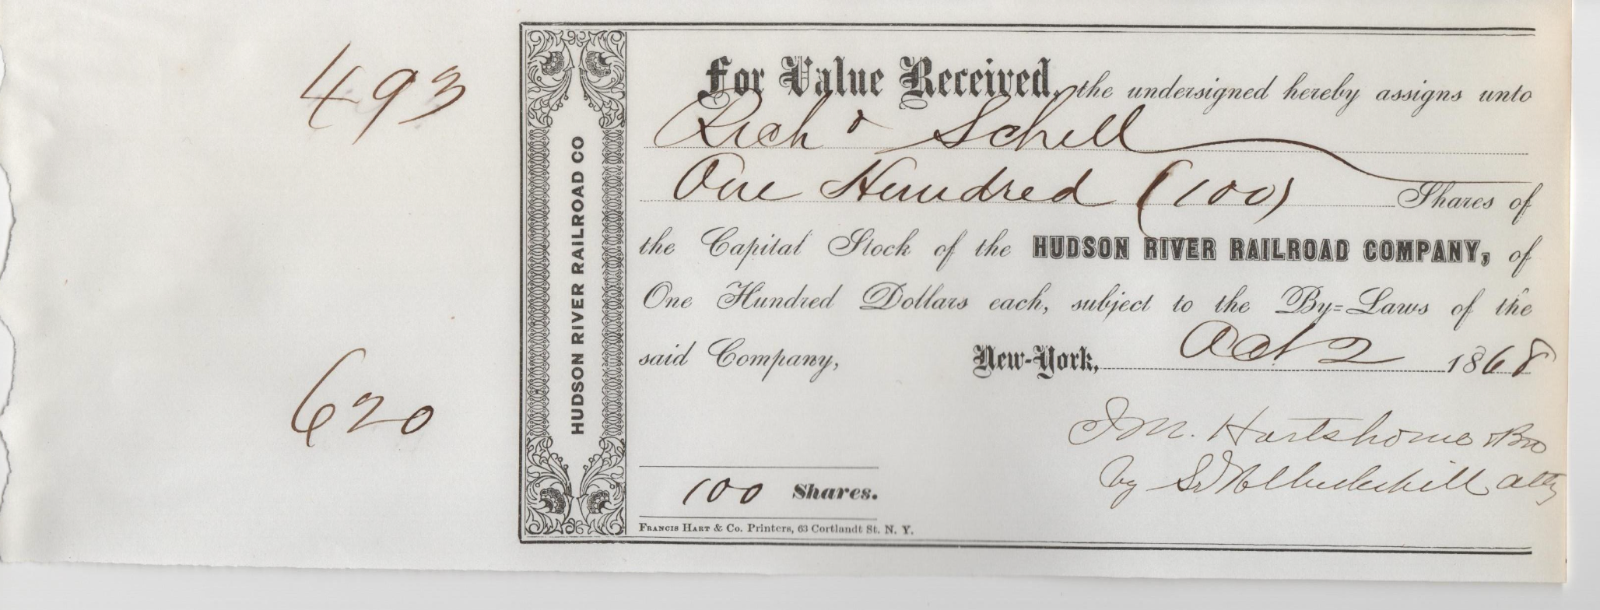 493
620
HUDSON RIVER RAILROAD CO
For Value Received, the undersigned hereby assigns unto
Richd Schell
One Hundred (100) Shares of
the Capital Stock of the HUDSON RIVER RAILROAD COMPANY, of
One Hundred Dollars each, subject to the By=Laws of the
said Company, New-York, Oct 2 1868
J M. Hartshorne & Bro
by Underhill atty
100 Shares.
FRANCIS HART & CO. Printers, 63 Cortlandt St. N. Y.